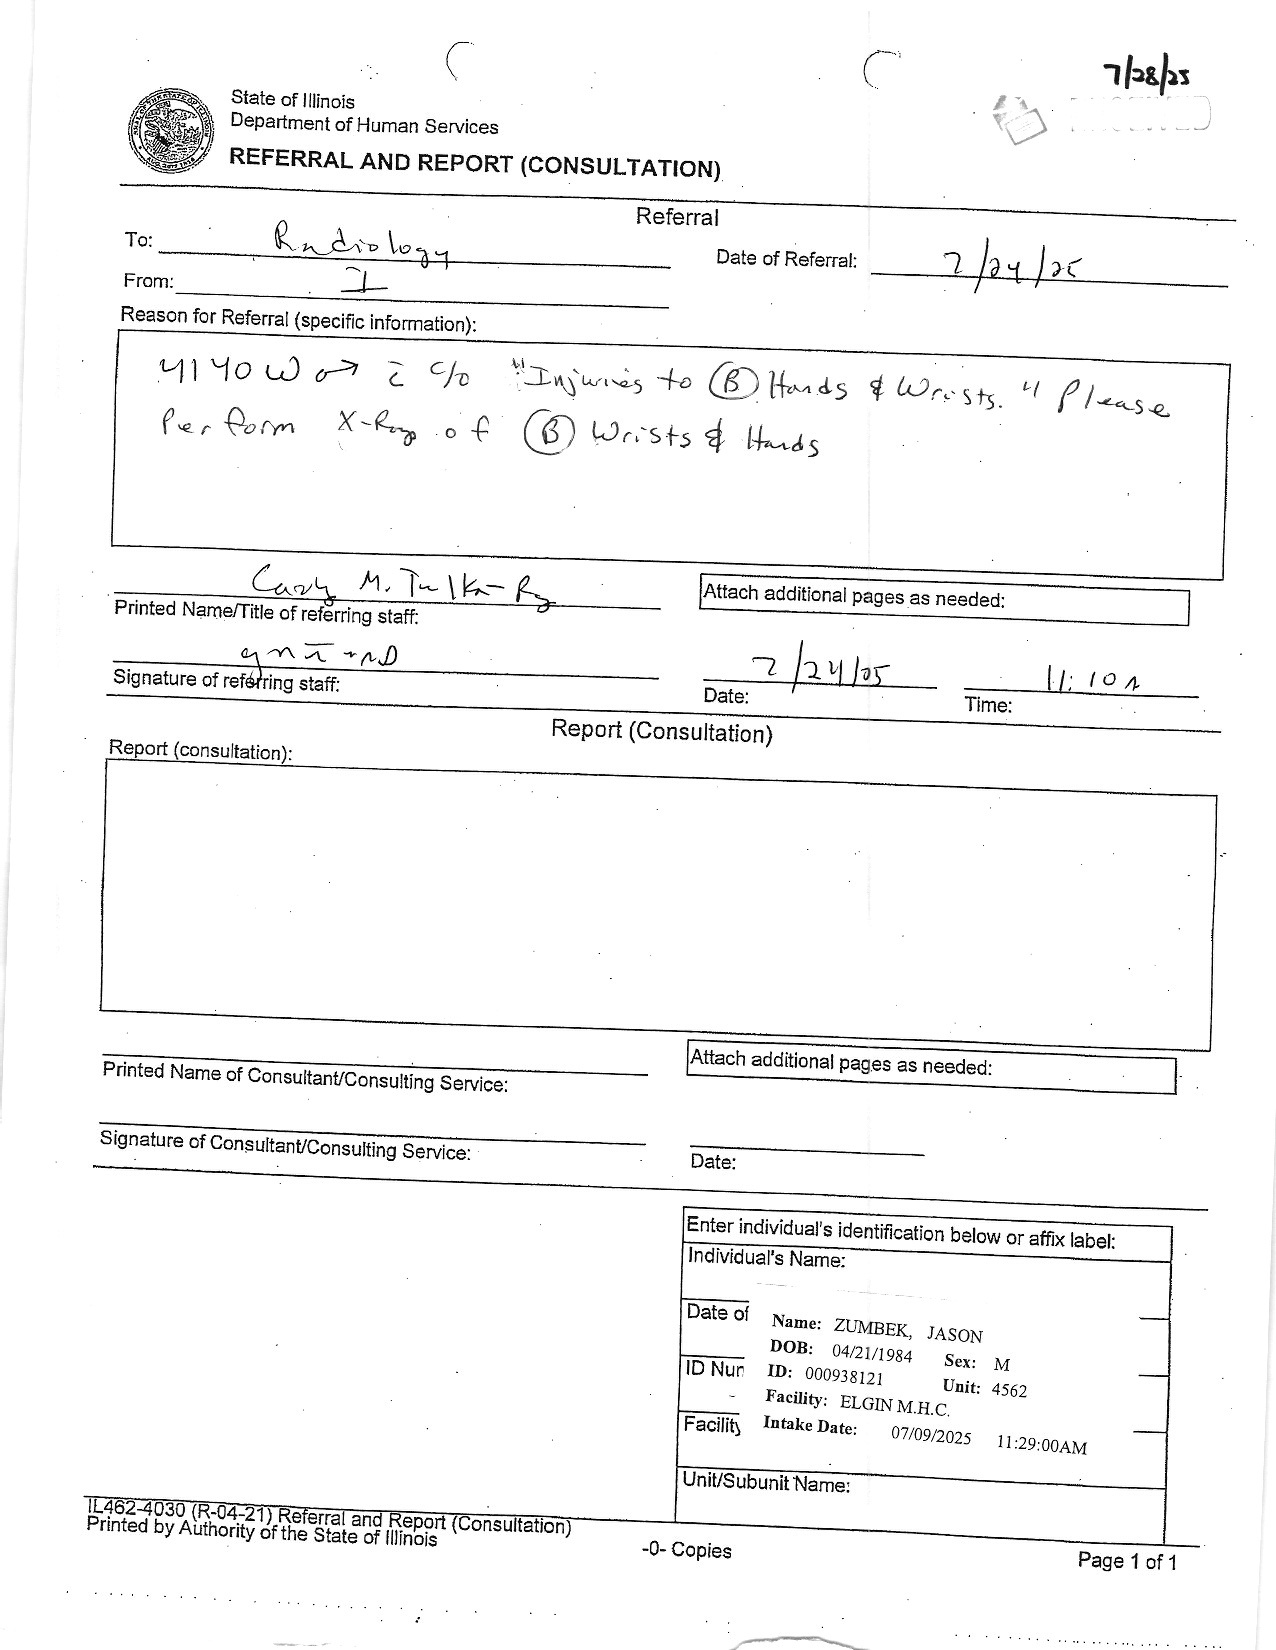 7/28/25
State of Illinois
Department of Human Services
REFERRAL AND REPORT (CONSULTATION)
Referral
To: Radiology
Date of Referral: 7/24/25
From: I
Reason for Referral (specific information):
41 YO W ♂ c̄ c/o "Injuries to Ⓑ Hands & Wrists." Please
Perform X-Ray of Ⓑ Wrists & Hands
Cary M.
Printed Name/Title of referring staff:
Attach additional pages as needed:
Signature of referring staff:
7/24/25
11:10A
Date:
Time:
Report (Consultation)
Report (consultation):
Printed Name of Consultant/Consulting Service:
Attach additional pages as needed:
Signature of Consultant/Consulting Service:
Date:
Enter individual's identification below or affix label:
Individual's Name:
Date of
Name: ZUMBEK, JASON
DOB: 04/21/1984 Sex: M
ID Nur
ID: 000938121 Unit: 4562
Facility: ELGIN M.H.C.
Facility
Intake Date: 07/09/2025 11:29:00AM
Unit/Subunit Name:
IL462-4030 (R-04-21) Referral and Report (Consultation)
Printed by Authority of the State of Illinois
-0- Copies
Page 1 of 1